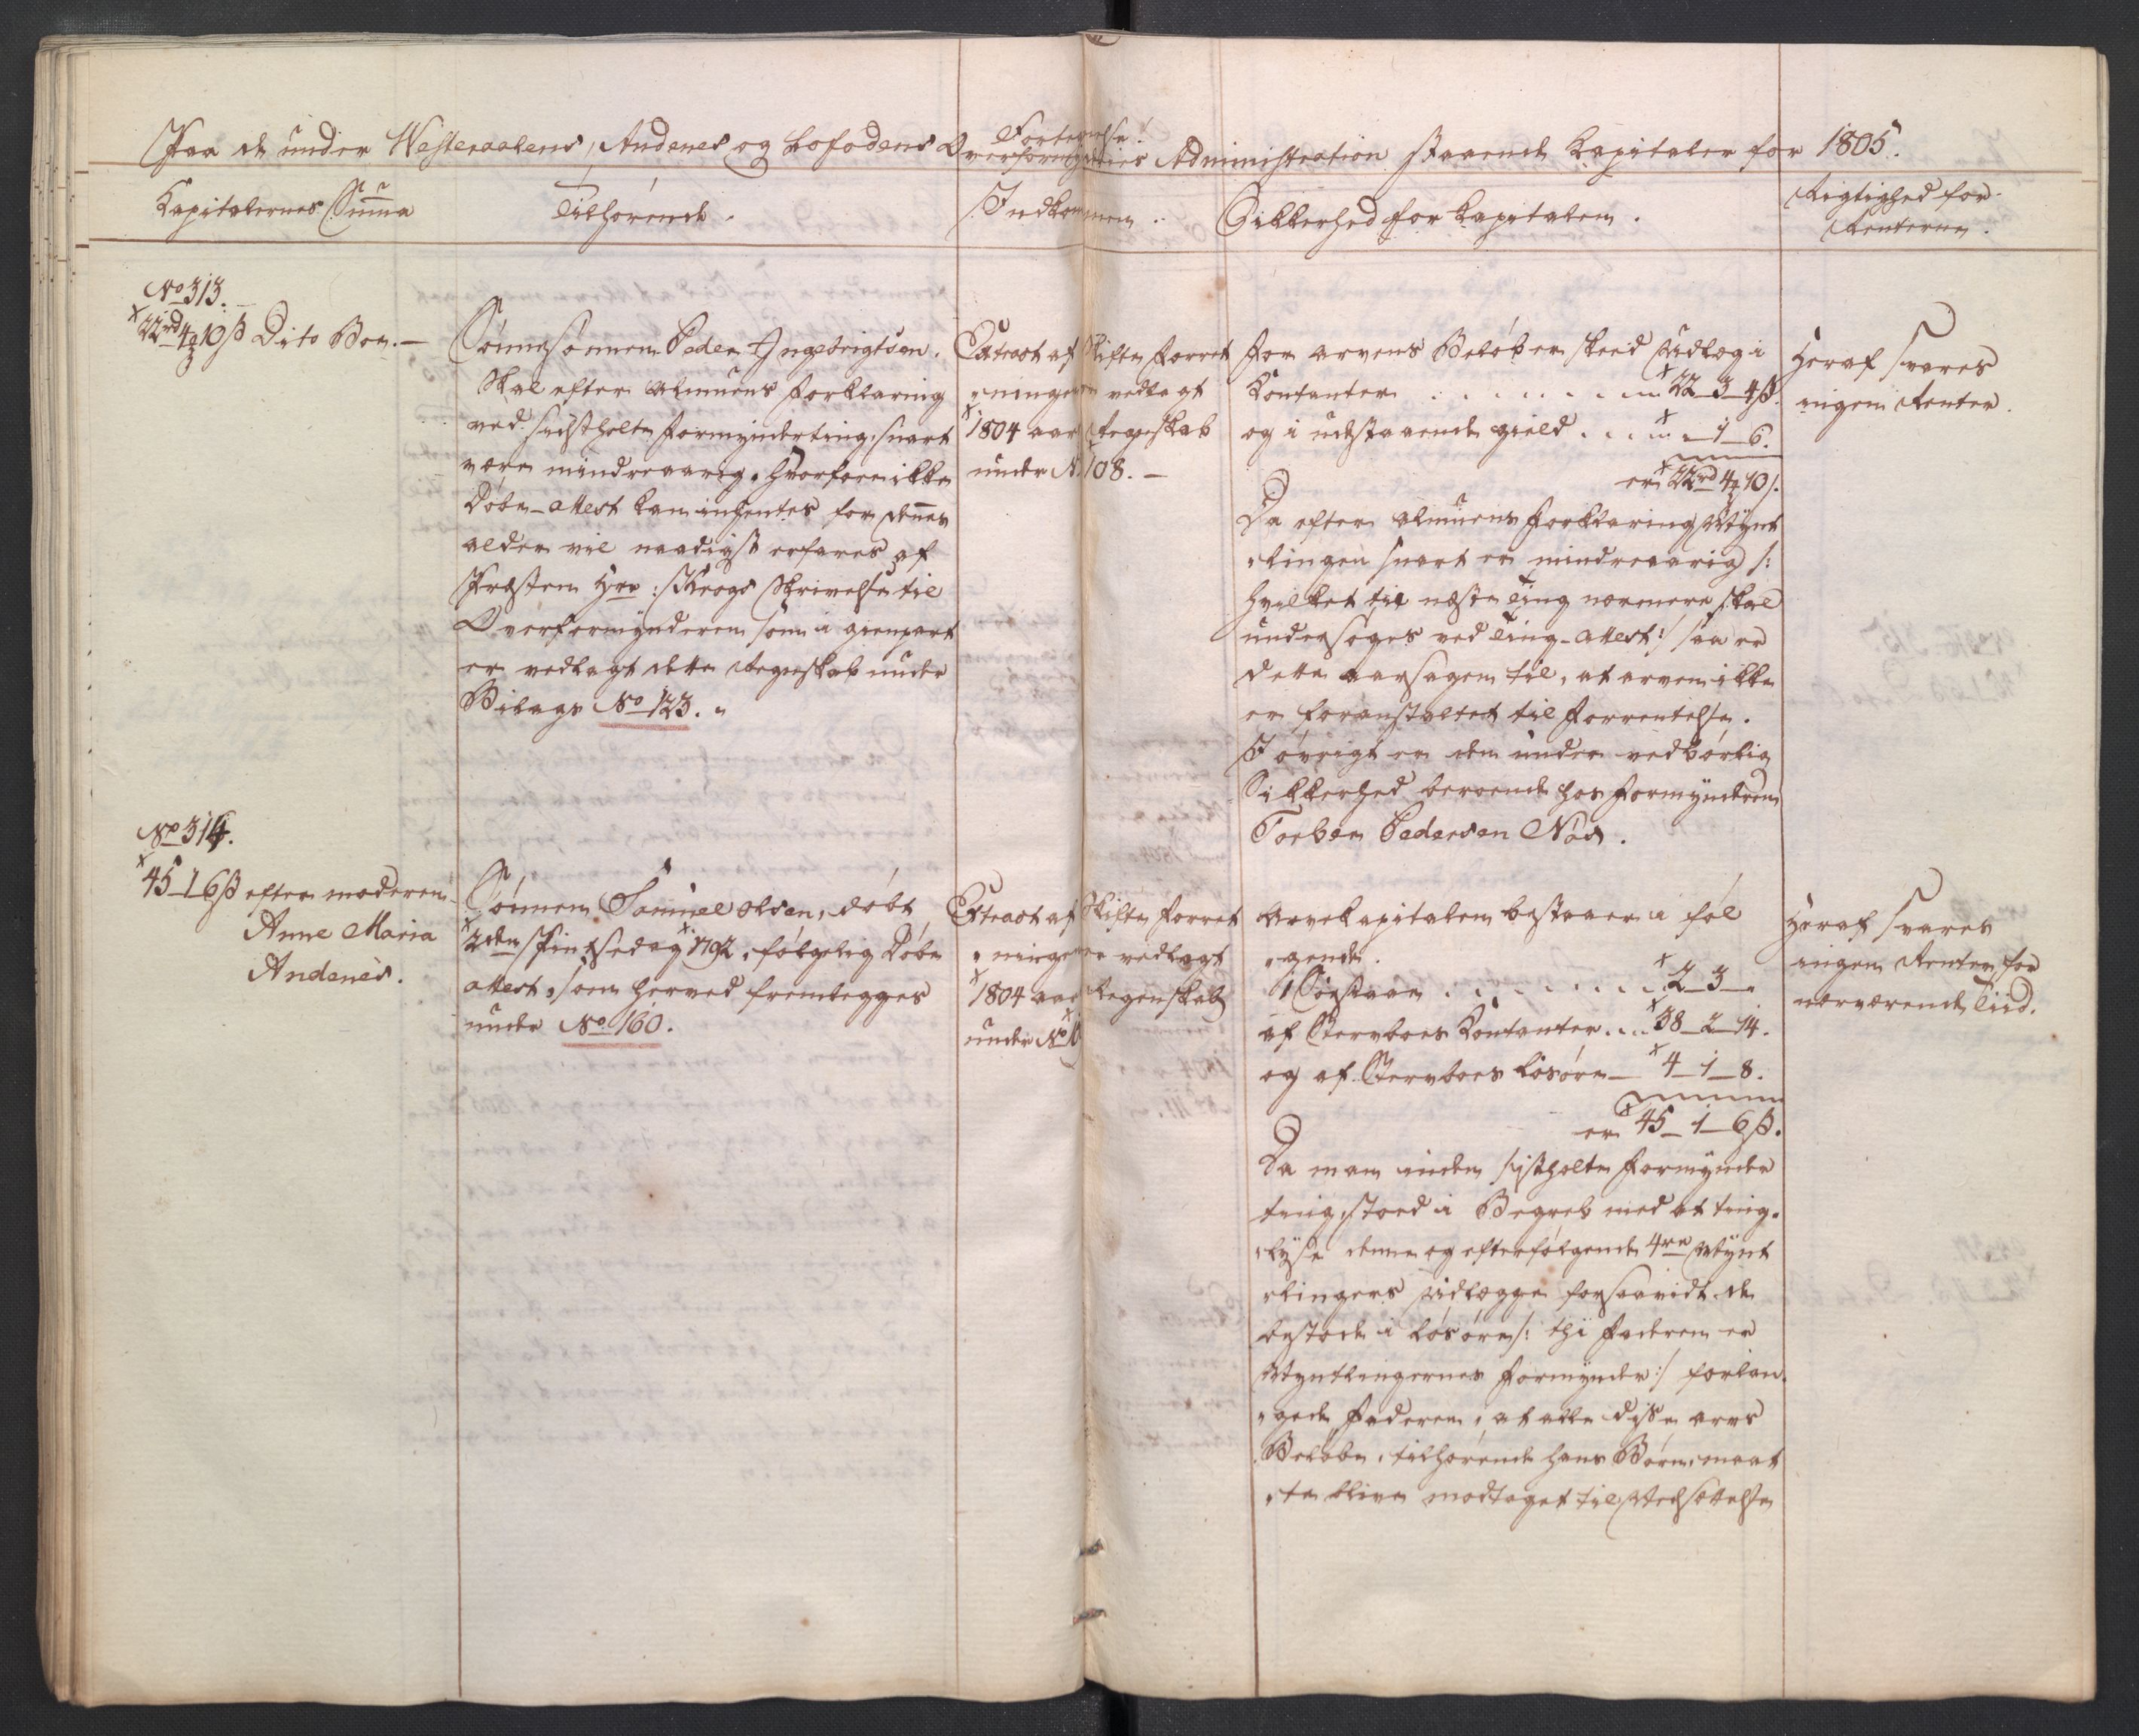 Fortegnelse
Paa de under Westeraalens, Andenes og Lofodens Overformynderies Administration staaende Kapitaler for 1805.
Kapitalernes Suma
Tilhørende.
Indkommen.
Sikkerhed for Kapitalen.
Rigtighed for
Renterne.
No 313.
22rd 4 10 ß Dito Boe. —
Sønnesønnen Peder Ingebrigtsen.
Skal efter Almuens Forklaring
ved sidstholte Formynderting, snart
være mindreaarig, hvorfore ikke
Døbe-Attest kan indhentes for dennes
alder vil naadigst erfares af
Præsten Hrr: Krogs Skrivelse til
Overformynderen som i gienpart
er vedlagt dette Regnskab under
Bilags No 123.
Extract af Skifte Forret
ningen vedlagt
1804 aars Regnskab
under N. 108. —
For arvens Beløb er skeed Udlæg i
Contanter . . . . . . . 22 – 3 – 4 ß.
og i udestaaende gield . . . . – 1 – 6.
er 22rd 4 10 ß.
Da efter Almuens Forklaring Mynt
lingen snart er mindreaarig /:
hvilket til næste Ting nærmere skal
undersøges ved Ting-Attest :/ saa er
dette aarsagen til, at arven ikke
er foranstaltet til Forrentelse.
I øvrigt er den under vedbørlig
Sikkerhed beroende hos Formynderen
Torber Pedersen Næs.
Heraf svares
ingen Renter.
No 314.
45 – 1 – 6 ß efter moderen
Anne Maria
Andenes.
Sønnen Samuel Olsen, døbt
2den Pintsedag 1792, følgelig Døbe
attest, som herved fremlegges
under No 160.
Extract af Skifte Forret
ningen er vedlagt
1804 aars Regnskab
under No
Arvekapitalen bestaaer i føl
gende.
. . . . . . . 2 – 3 –
af Stervboes Contanter . . . 38 – 2 – 14.
og af Stervboes Løsøre — 4 – 1 – 8.
er 45 – 1 – 6 ß.
Da man inden sistholte Formynder
ting, stoed i Begreb med at ting
lyse denne og efterfølgende 4re Mynt
lingers Udlægge forsaavidt de
bestode i Løsøre /: thi Faderen er
Myntlingernes Formynder :/ forlan
gede Faderen, at alle disse arvs
Beløbe, tilhørende hans Børn, maat
te blive modtaget til Udsættelse
Heraf svares
ingen Renter for
nærværende Tiid.